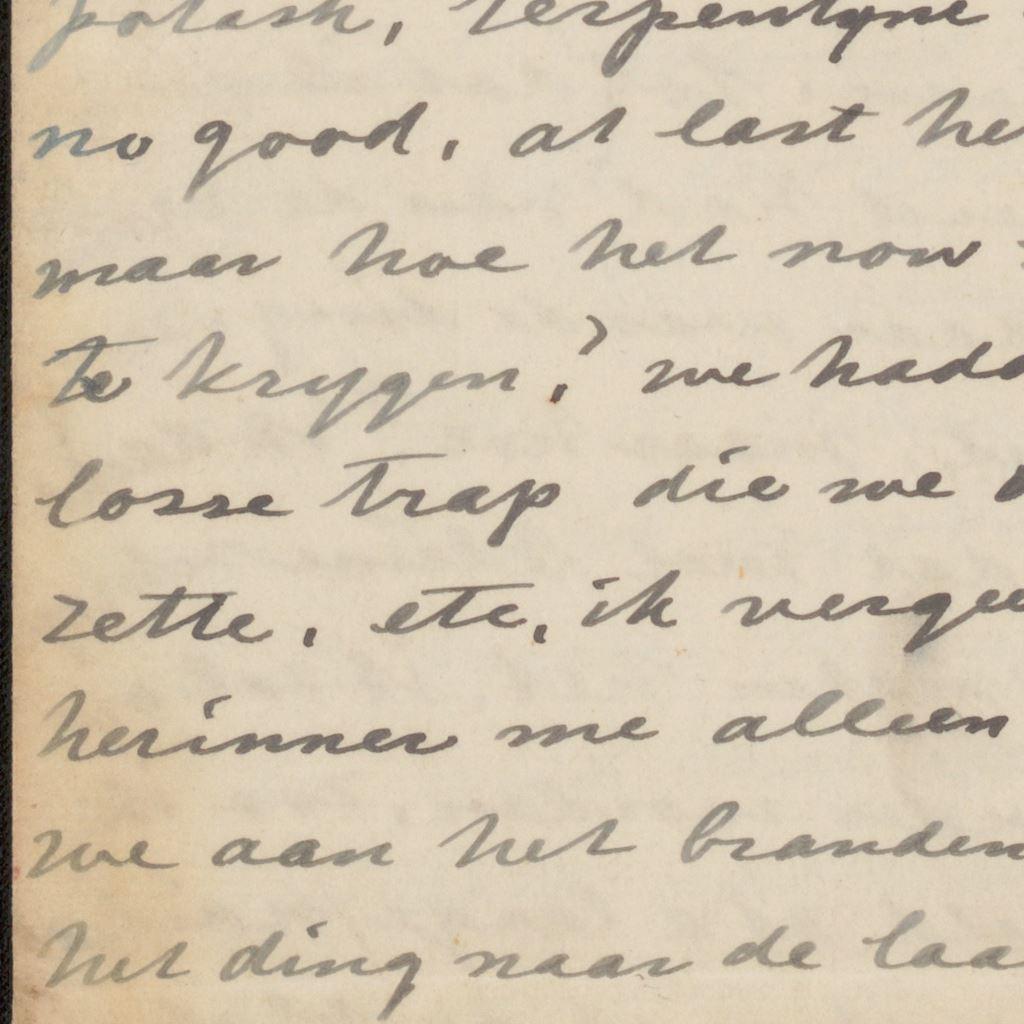 potash, terpentyne
no good, at last he
maar hoe het now
te krygen? we hadd
losse trap die we
zette, etc, ik vergee
herinner me alleen
we aan het branden
het ding naar de laa